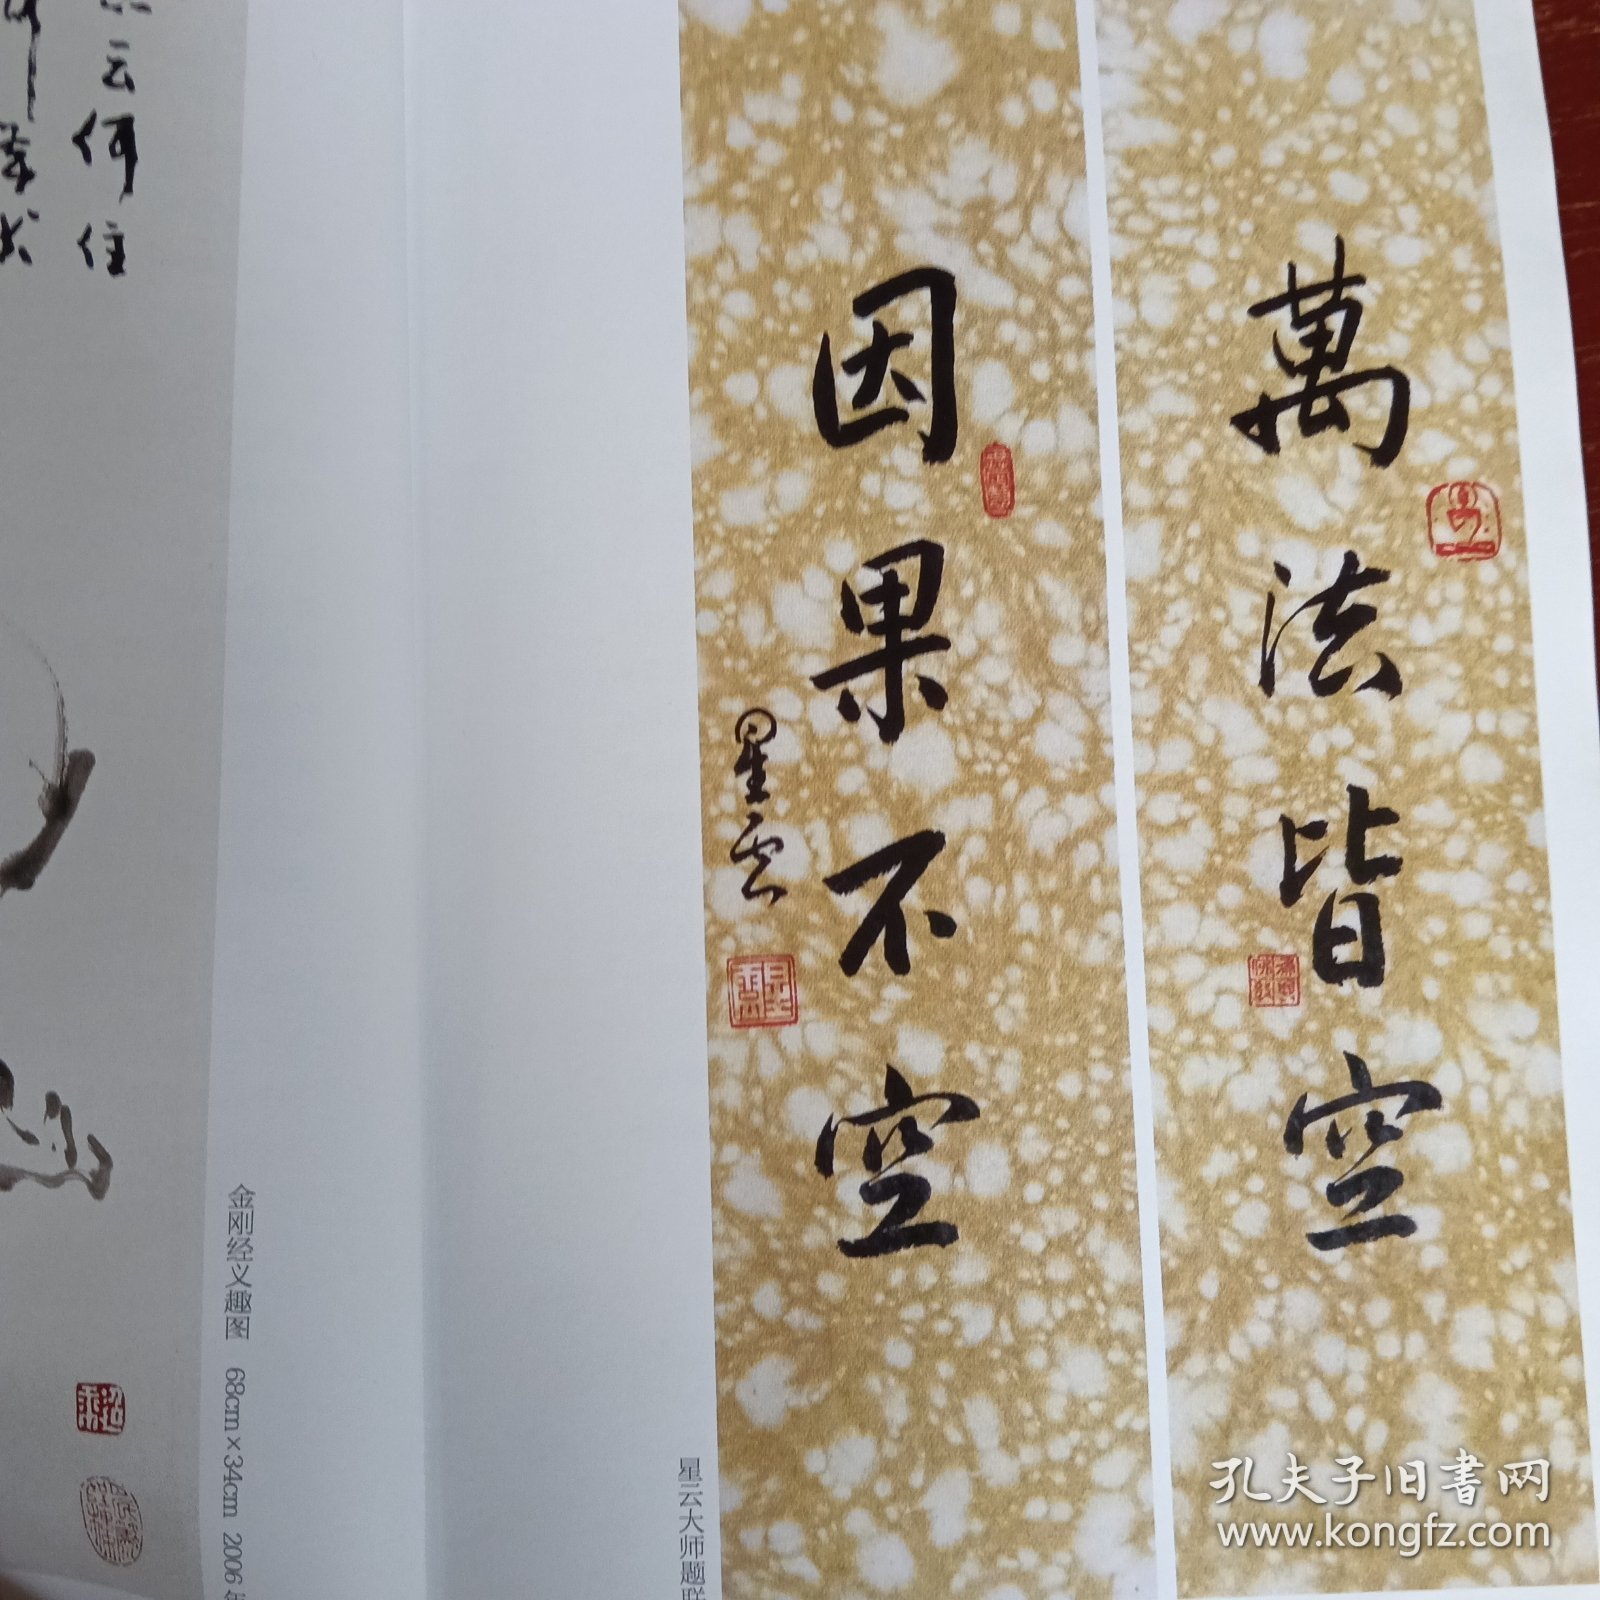 萬法皆空
因果不空
星云
星云大师题联
云何住
金刚经义趣图 68cm×34cm 2006年
孔夫子旧书网
www.kongfz.com